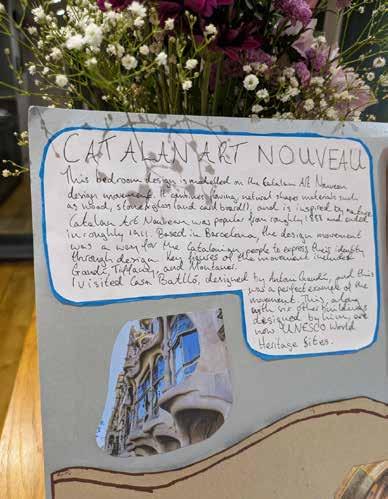 CATALAN ART NOUVEAU
This bedroom design is modelled on the Catalan Art Nouveau
design movement. It combines flowing, natural shape materials such
as wood, stone, glass (and card board!), and is inspired by nature.
Catalan Art Nouveau was popular from roughly 1888 and ended
in roughly 1911. Based in Barcelona, the design movement
was a way for the Catalonian people to express their identity
through design. Key figures of the movement included
Gaudí, Tiffany, and Montaner.
I visited Casa Batlló, designed by Antoni Gaudí, and this
was a perfect example of the
movement. This, along
with six other buildings
designed by him, are
now UNESCO World
Heritage Sites.